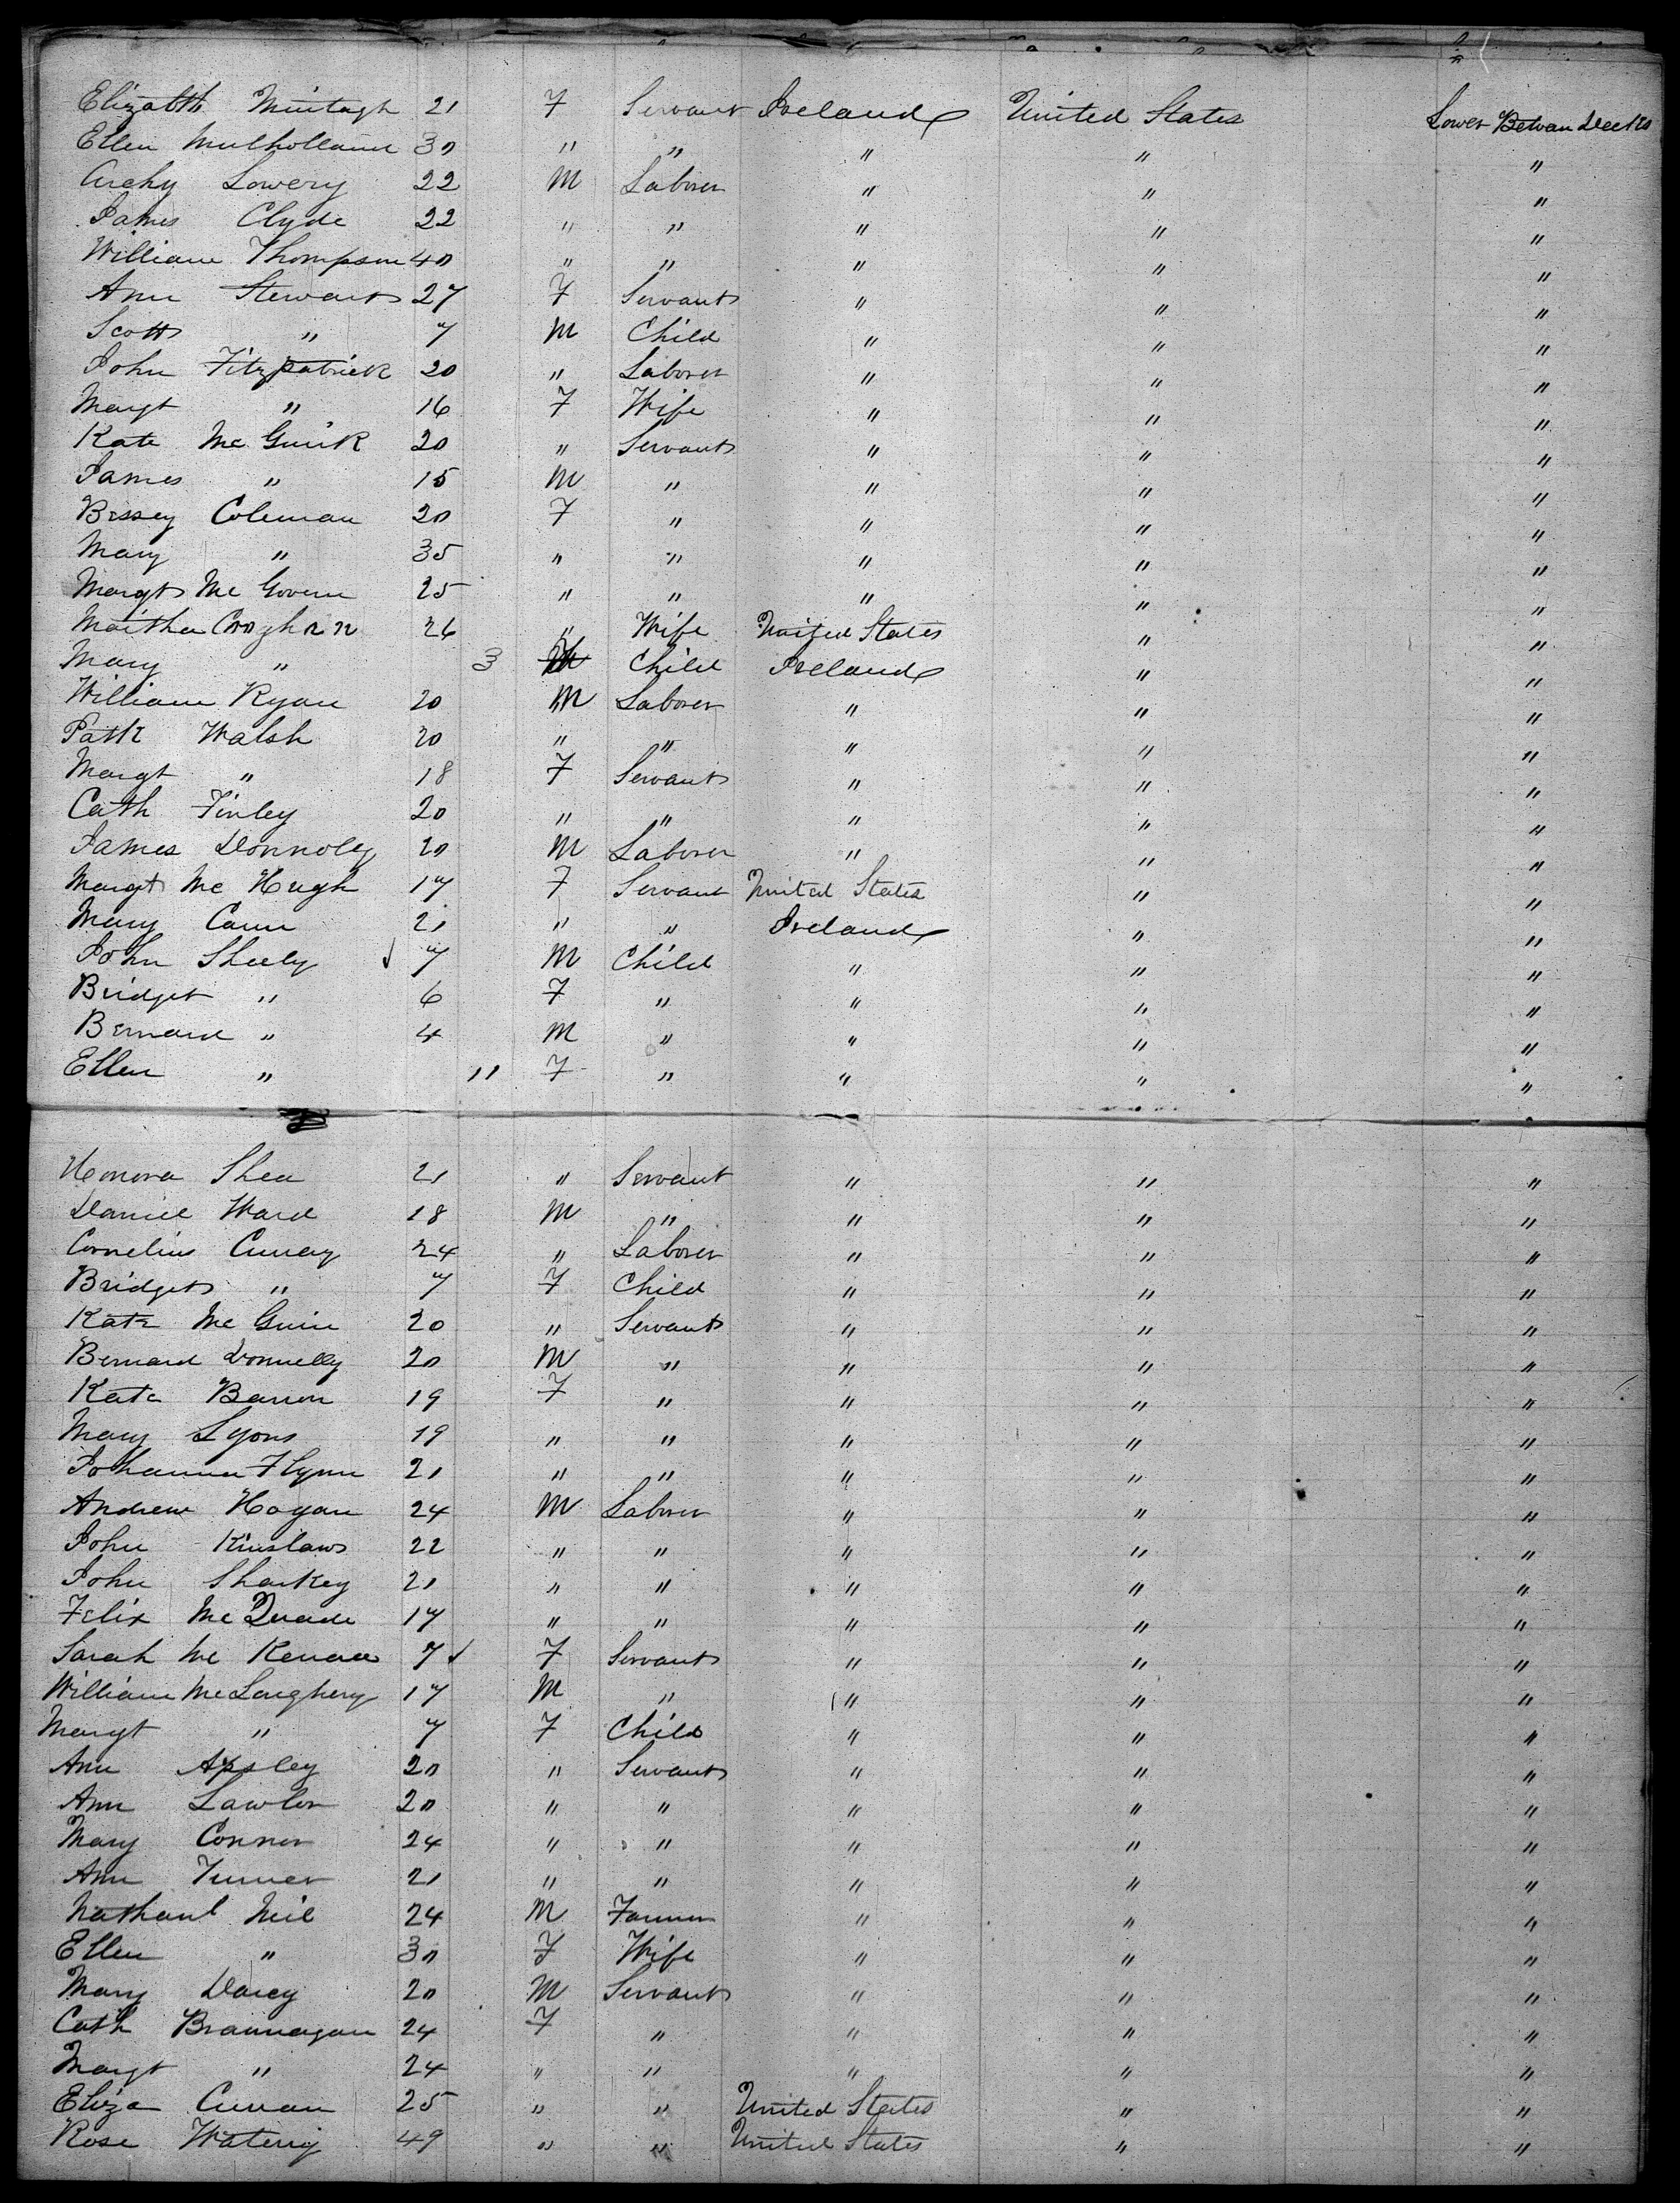 Elizabth Murtagh 21 F Servant Ireland United States Lower Betwan Decks
Ellen Mulholland 30 " " " " "
Archy Lowery 22 M Laborer " " "
James Clyde 22 " " " " "
William Thompson 40 " " " " "
Ann Stewart 27 F Servant " " "
Scott " 7 M Child " " "
John Fitzpatrick 20 " Laborer " " "
Margt " 16 F Wife " " "
Kate Mc Guirk 20 " Servant " " "
James " 15 M " " " "
Bessey Coleman 20 F " " " "
Mary " 35 " " " " "
Margt Mc Govern 25 " " " " "
Martha Croghan 26 " Wife United States " "
Mary " 3 Child Ireland " "
William Ryan 20 M Laborer " " "
Patk Walsh 20 " " " " "
Margt " 18 F Servant " " "
Cath Finley 20 " " " " "
James Donnoley 20 M Laborer " " "
Margt Mc Hugh 17 F Servant United States " "
Mary Cann 21 " " Ireland " "
John Sheely 7 M Child " " "
Bridget " 6 F " " " "
Bernard " 4 M " " " "
Ellen " 11 F " " " "
Honora Shea 21 " Servant " " "
Daniel Ward 18 M " " " "
Cornelius Curray 24 " Laborer " " "
Bridget " 7 F Child " " "
Kate Mc Guire 20 " Servant " " "
Bernard Donnelly 20 M " " " "
Kate Barron 19 F " " " "
Mary Lyons 19 " " " " "
Johanna Flynn 21 " " " " "
Andrew Hogan 24 M Laborer " " "
John Kinslaw 22 " " " " "
John Sharkey 21 " " " " "
Felix Mc Quade 17 " " " " "
Sarah Mc Kenna 7 F Servant " " "
William Mc Loughery 17 M " " " "
Margt " 7 F Child " " "
Ann Apsley 20 " Servant " " "
Ann Lawlor 20 " " " " "
Mary Connor 24 " " " " "
Ann Turner 21 " " " " "
Nathanl Neil 24 M Farmer " " "
Ellen " 30 F Wife " " "
Mary Darcy 20 M Servant " " "
Cath Brannagan 24 F " " " "
Margt " 24 " " " " "
Eliza Curran 25 " " United States " "
Rose 49 " " United States " "